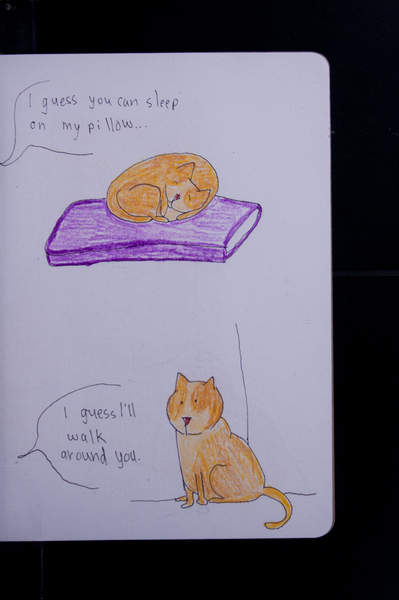 I guess you can sleep
on my pillow...
I guess I'll
walk
around you.